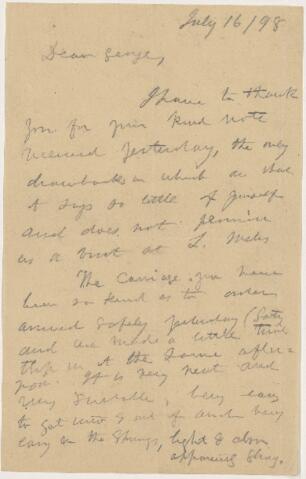 July 16/98
Dear George,
I have to thank
you for your kind note
received yesterday, the only
drawback in which is that
it says so little of yourself
and does not promise
us a visit at L. Metis
The carriage you have
been so kind as to order
arrived safely yesterday (Saty
and we made a little trial
trip in it the same after-
noon. It is very neat and
very suitable, very easy
to get into & out of and very
easy on the springs, light & also
appearing strong.